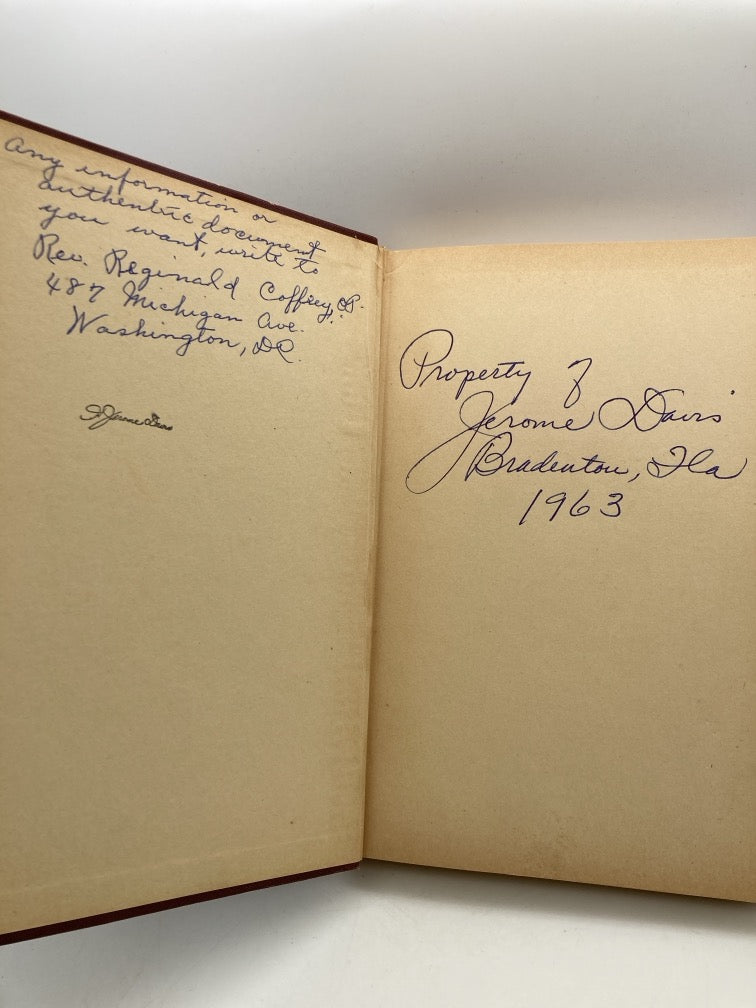 Any information or
authentic document
you want, write to
Rev. Reginald Coffey, O.P.
487 Michigan Ave.
Washington, DC.
Jerome Davis
Property of
Jerome Davis
Bradenton, Fla
1963